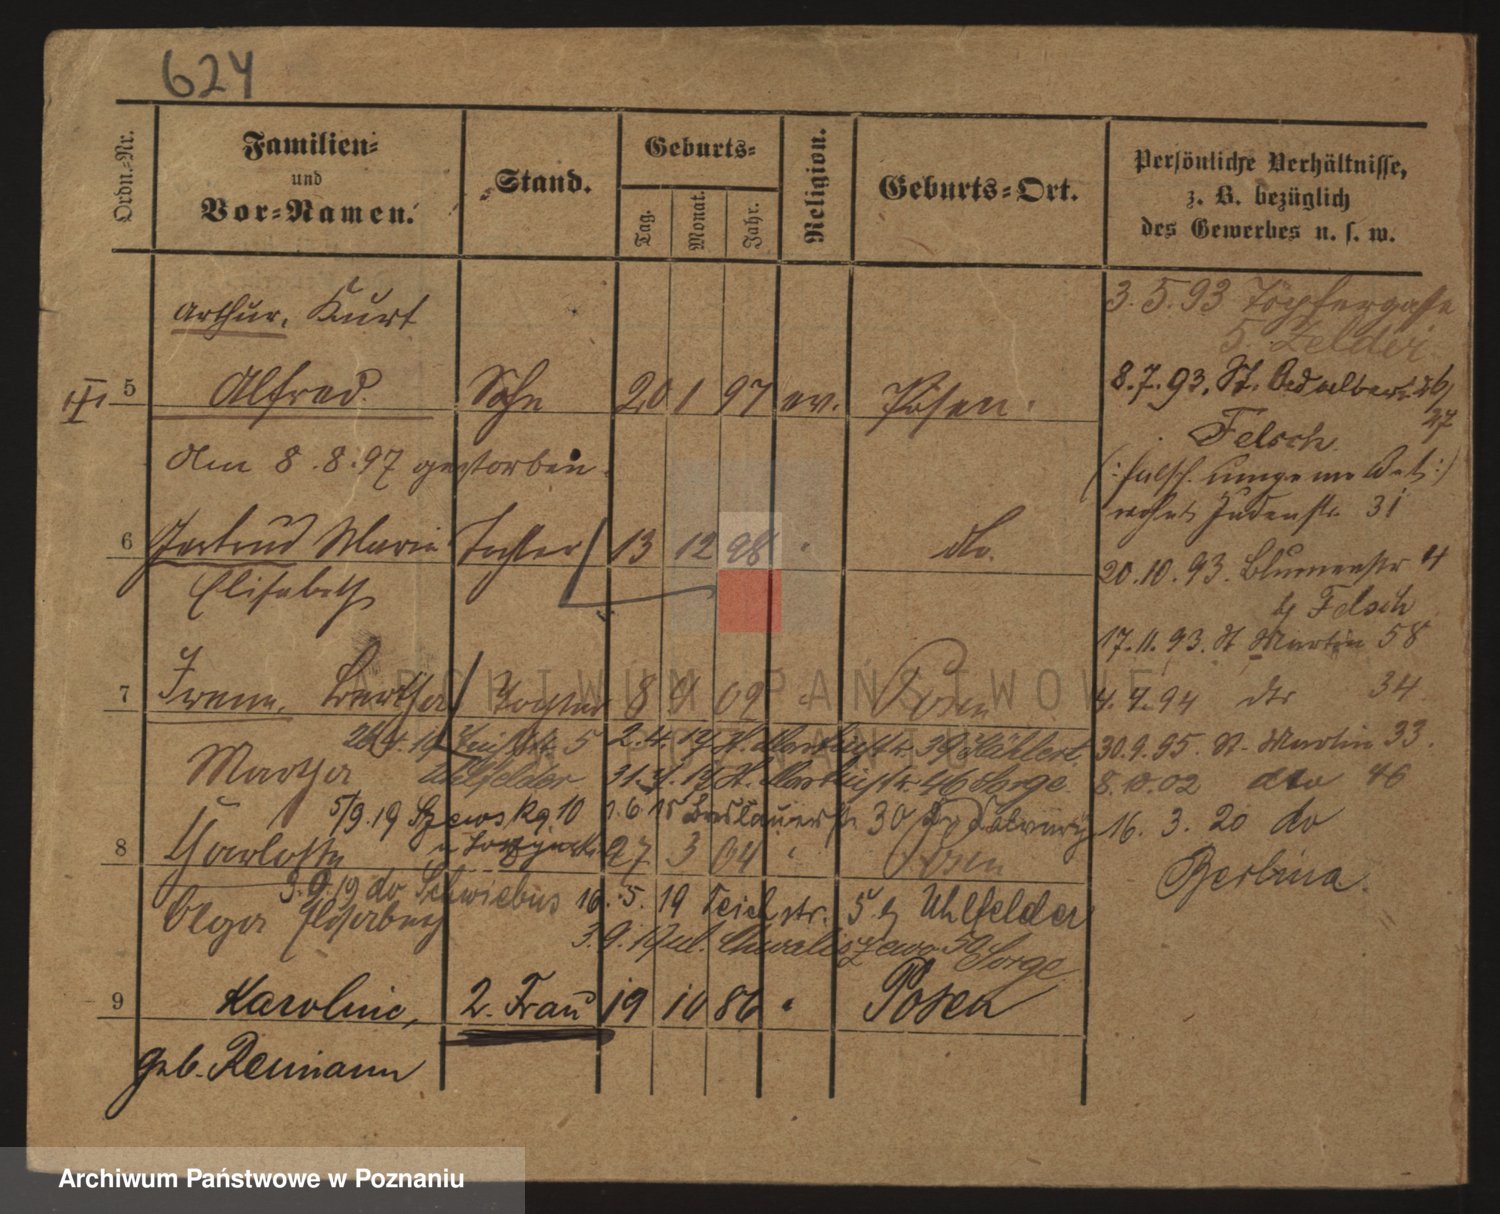 624
Ordn.-Nr.
Familien-
und
Vor-Namen.
Stand.
Geburts-
Tag.
Monat.
Jahr.
Religion.
Geburts-Ort.
Persönliche Verhältnisse,
z. B. bezüglich
des Gewerbes u. s. w.
Arthur, Kurt
5 Alfred. Sohn 20 1 97 ev. Posen.
am 8.8.97 gestorben.
6 Gertrud Marie Tochter 13 12 98 " do.
Elisabeth
7 Irene, Bertha Tochter 8 9 02 " Posen
2.4.19 St. Martinstr. 39
Martha Uhlfelder 46 Sorge.
5/9.19 10 1.6.15 30
8 Charlotte 27 3 04 " Posen
3.9.19 do Schwiebus 16.5.19 Teichstr. 5 b Uhlfelder
Olga Elisabeth
3.9.19 ul. 50 Sorge
9 Karoline, 2. Frau 19 10 86 " Posen
geb. Reimann
3.5.93 Töpfergasse
5. Zelder
8.7.93. St. Adalbert 26/
27
Felsch
(: falsch umgemeldet :)
wohnt Judenstr. 31
20.10.93. Blumenstr 4
b Felsch
17.11.93. St Martin 58
4.4.94 dto 34
30.9.95. St. Martin 33.
8.10.02 dto 46
16. 3. 20 do
Berlina.
ARCHIWUM PAŃSTWOWE
W POZNANIU
Archiwum Państwowe w Poznaniu